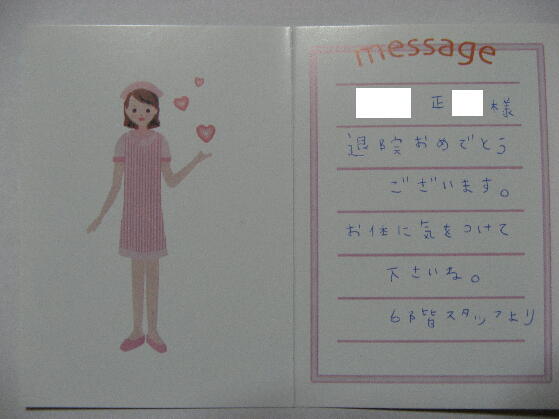 message
正 様
退院おめでとう
ございます。
お体に気をつけて
下さいね。
6階スタッフより